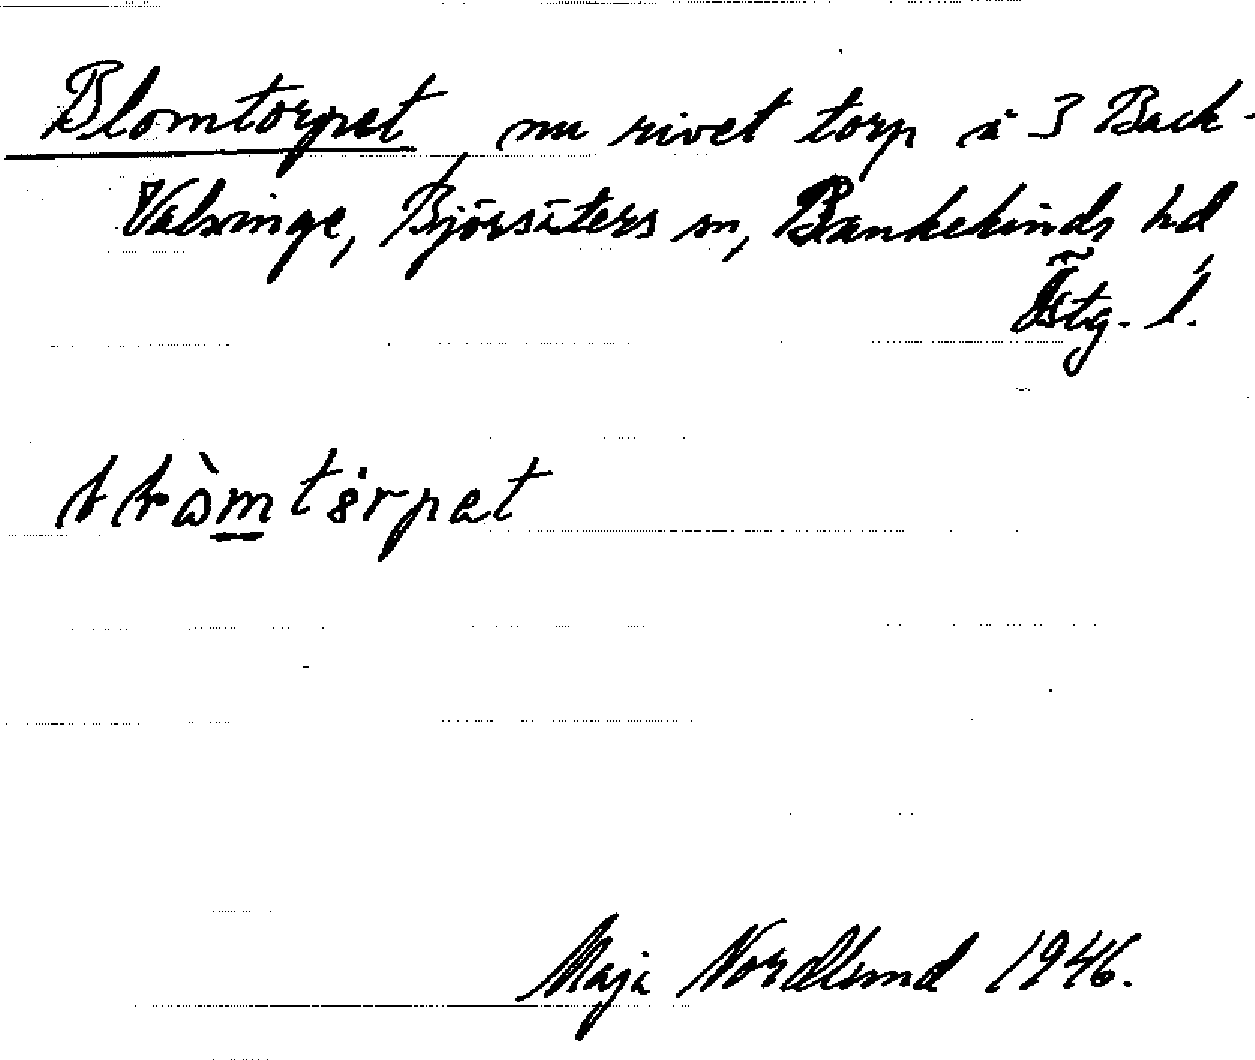 Blomtorpet, nu rivet torp å 3 Back-
Valsinge, Björsäters sn, Bankekinds hd
Östg. l.
Maja Nordlund 1946.